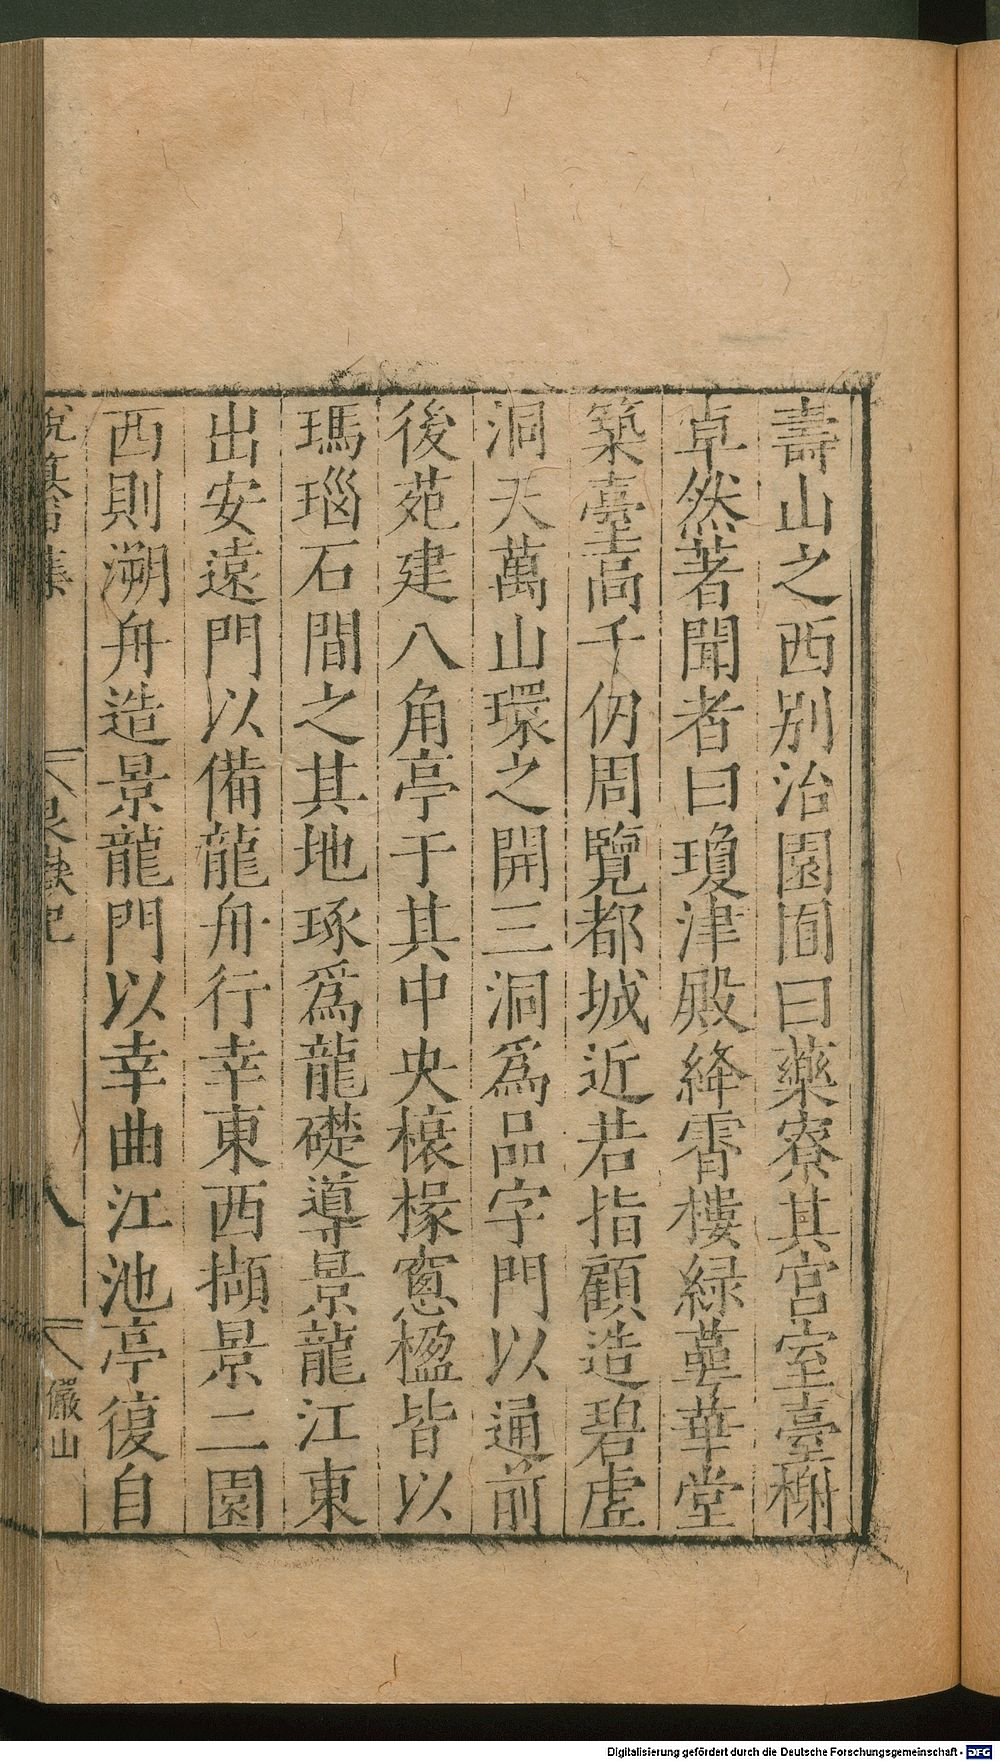 壽山之西別治園囿曰藥寮其宮室臺榭
卓然著聞者曰瓊津殿絳霄樓綠萼華堂
築臺高千仞周覽都城近若指顧造碧虛
洞天萬山環之開三洞爲品字門以通前
後苑建八角亭于其中央榱椽窻楹皆以
瑪瑙石間之其地琢爲龍礎導景龍江東
出安遠門以備龍舟行幸東西擷景二園
西則溯舟造景龍門以幸曲江池亭復自
艮嶽記
八
儼山
Digitalisierung gefördert durch die Deutsche Forschungsgemeinschaft - DFG